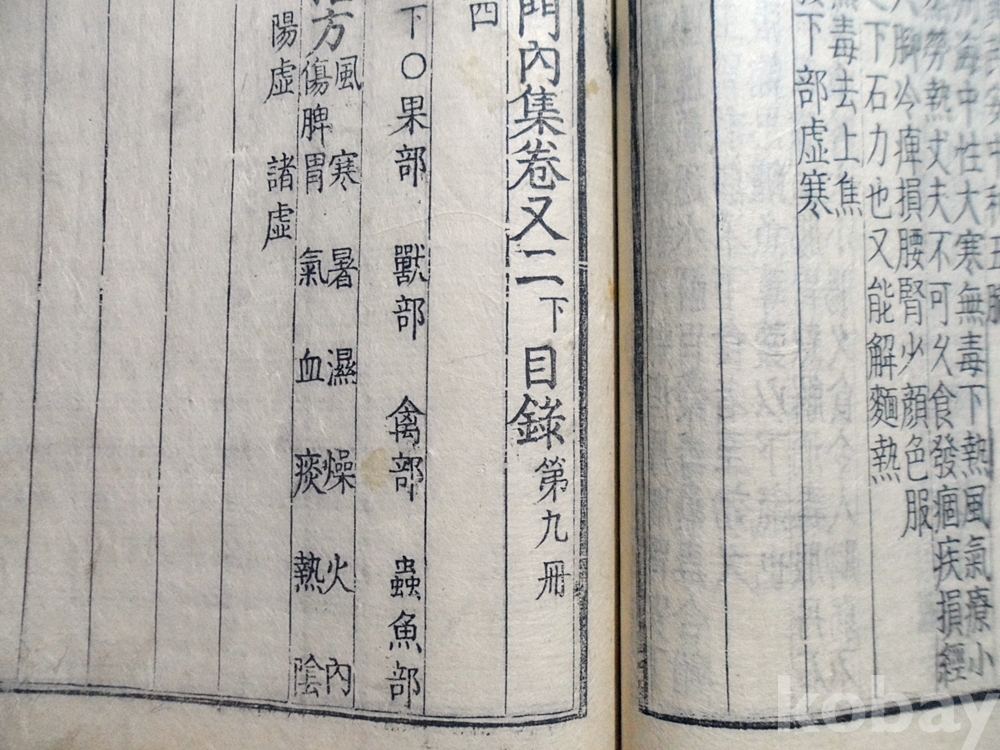 海中性大寒無毒下熱風氣療小
勞熱丈夫不可久食發痼疾損經
脚冷痺損腰腎少顏色服
下石力也又能解麵熱
毒去上焦
下部虛寒
門內集卷又二下目錄第九冊
四
下○果部 獸部 禽部 蟲魚部
治方風 寒 暑 濕 燥 火 內
傷脾胃 氣 血 痰 熱 陰
陽虛 諸虛
kobay